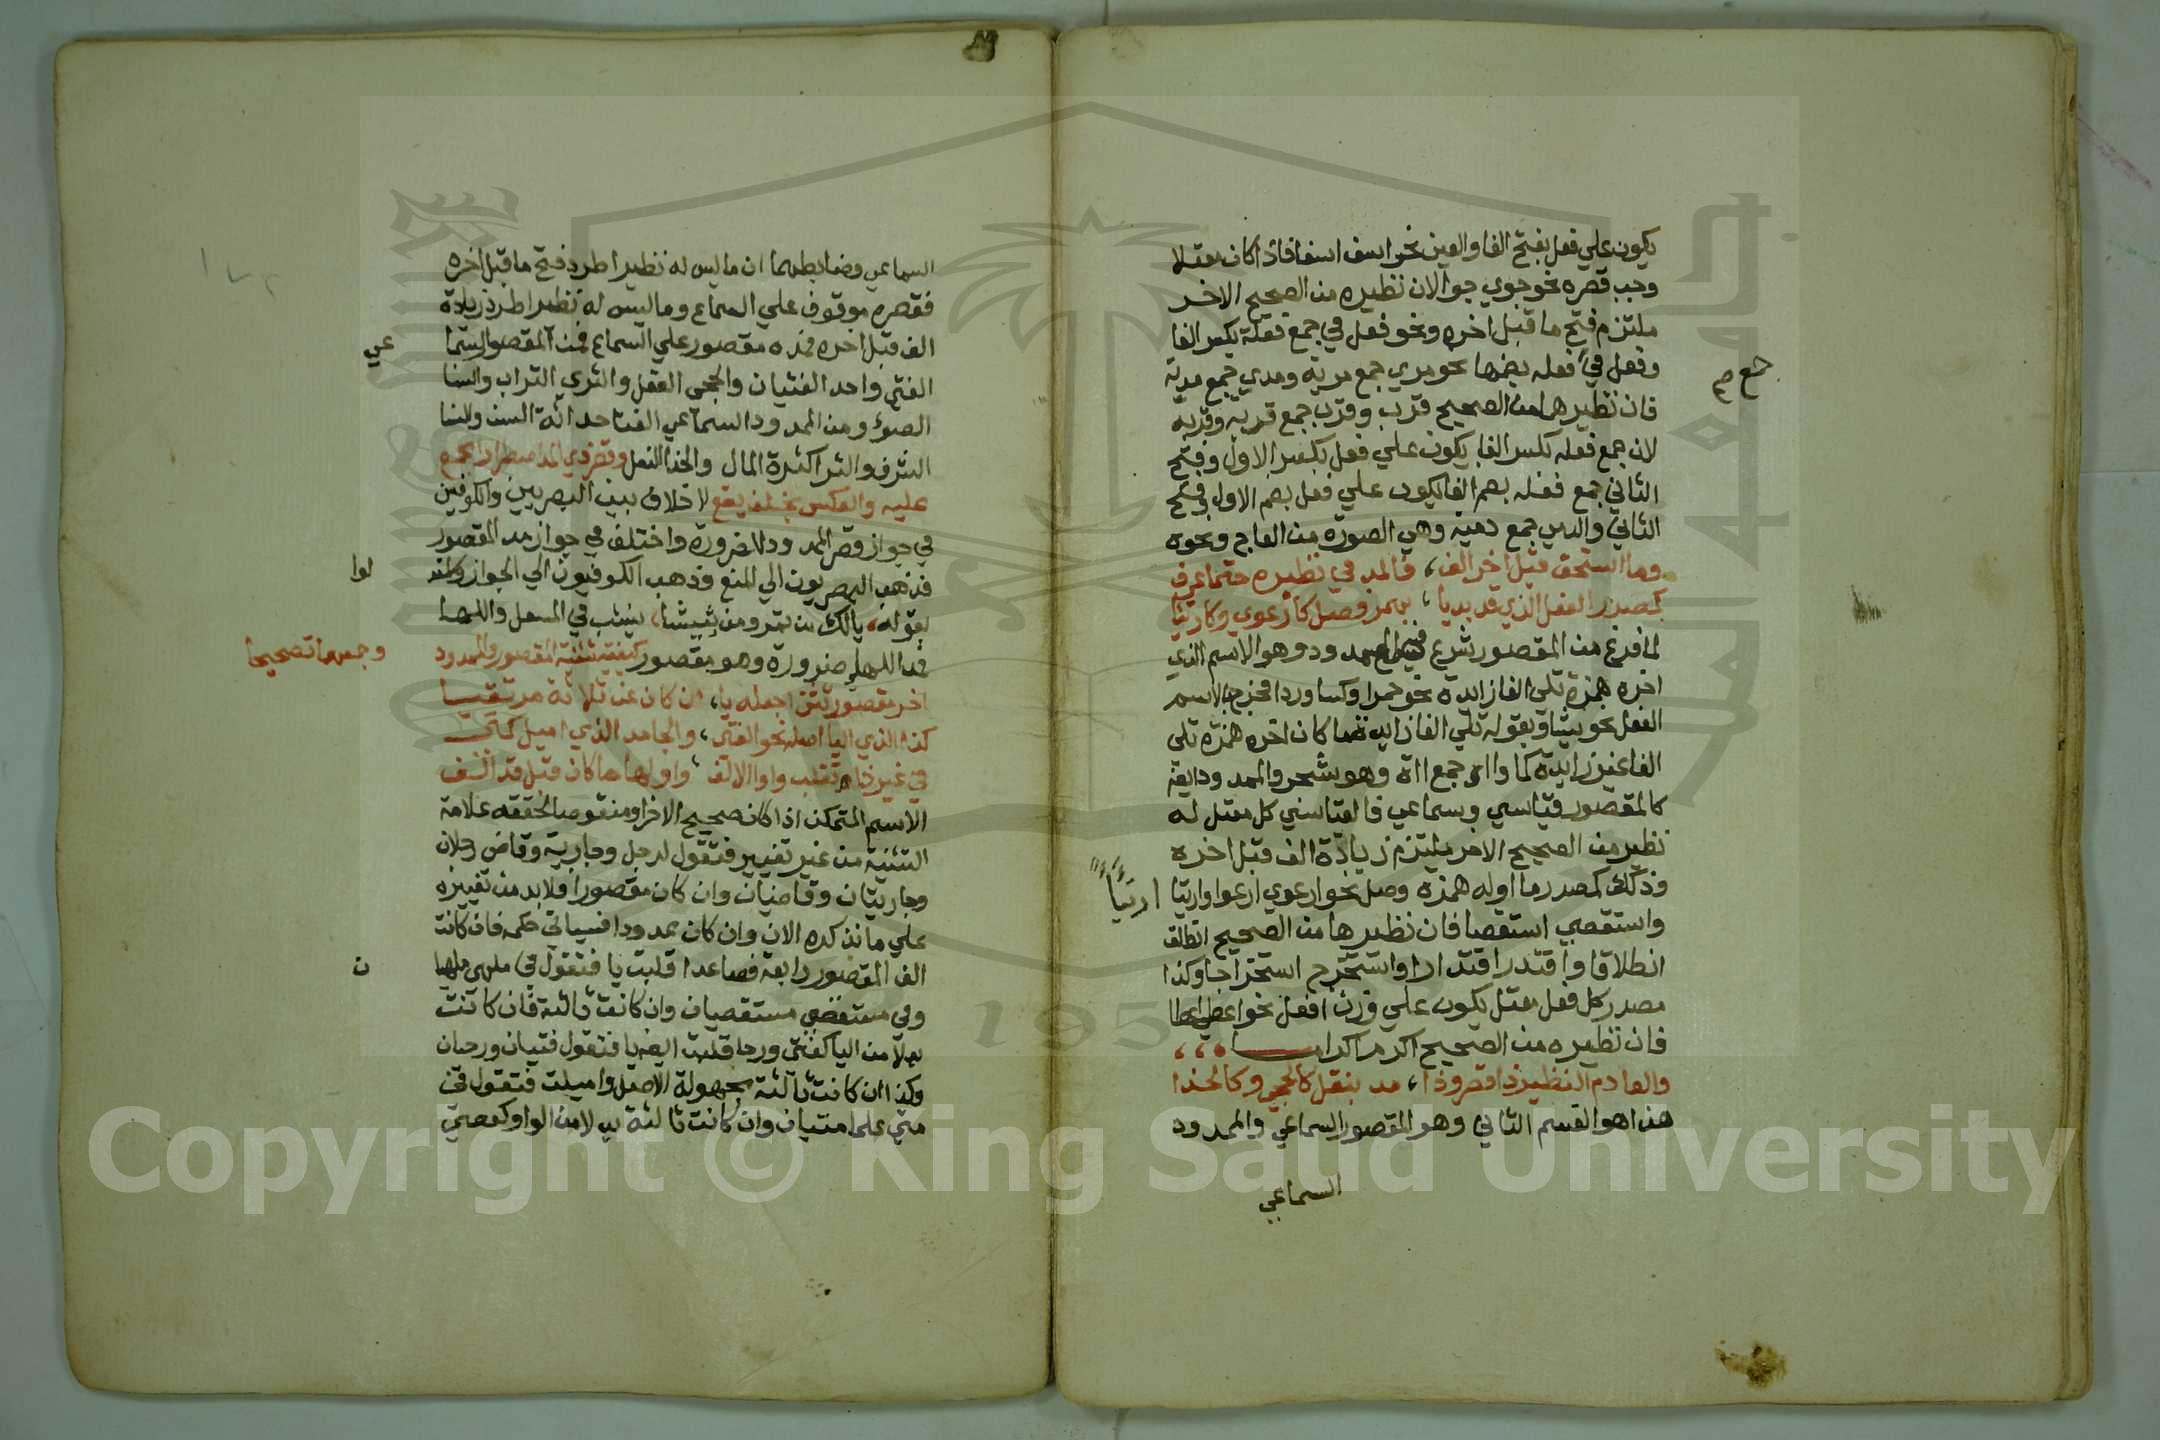 يكون علي فعل بفتح الفا والعين نحو اسف اسفا فاذا كان معتلا
وجب قصره نحو جوي جوا لان نظيره من الصحيح الاخر
ملتزم فتح ما قبل اخره ونحو فعل في جمع فعلة بكسر الفا
وفعل في فعله بضمها نحو مري جمع مرية ومدي جمع مدية
جمع
فان نظيرهما من الصحيح قرب وقرب جمع قربة وقربه
لان جمع فعله بكسر الفا يكون علي فعل بكسر الاول وفتح
الثاني جمع فعله بضم الفا يكون علي فعل بضم الاول وفتح
الثاني والدمي جمع دمية وهي الصورة من العاج ونحوه
وما استحق قبل اخر الف، فالمد في نظيره حتما عرف
كمصدر الفعل الذي قد بديا، بهمز وصل كارعوي وكارتيا
لما فرغ من المقصور شرع في الممدود وهو الاسم الذي
اخره همزة تلي الفا زايدة نحو حمرا وكسا وردا فخرج بالاسم
الفعل نحو يشا وبقوله تلي الفا زايدة ما كان اخره همزة تلي
الفا غير زايدة كما واا جمع ااة وهو شجر والممدود ايضا
كالمقصور قياسي وسماعي فالقياسي كل معتل له
نظير من الصحيح الاخر ملتزم زيادة الف قبل اخره
وذلك كمصدر ما اوله همزه وصل نحو ارعوي ارعوا وارتيا
ارتيا
واستقصي استقصا فان نظيرها من الصحيح انطلق
انطلاقا واقتدر اقتدارا واستخرج استخراجا وكذا
مصدر كل فعل معتل يكون علي وزن افعل نحو اعطي اعطا
فان نظيره من الصحيح اكرم اكراما
والعادم النظير ذا قصر وذا، مد بنقل كالحجي وكالحذا
هذا هو القسم الثاني وهو المقصور السماعي والممدود
السماعي
السماعي وضابطهما ان ما ليس له نظير اطرد فتح ما قبل اخره
فقصره موقوف علي السماع وما ليس له نظير اطرد زيادة
الف قبل اخره فمده مقصور علي السماع فمن المقصور السما
عي
الفتي واحد الفتيان والحجي العقل والثري التراب والسنا
الضوء ومن الممدود السماعي الفتا حداثة السن والسنا
الشرف والثرا كثرة المال والحذا النعل وقصر ذي المد اضطرارا مجمع
عليه والعكس بخلف يقع لا خلاف بين البصريين والكوفيين
في جواز قصر الممدود للضرورة واختلف في جواز مد المقصور
فذهب البصريون الي المنع وذهب الكوفيون الي الجواز واستد
لوا
بقوله، يالك من تمر ومن شيشا، ينشب في المسعل واللها
فمد اللها ضرورة وهو مقصور كيفية تثنية المقصور والممدود
وجمعهما تصحيحا
اخر مقصور تثن اجعله يا، ان كان عن ثلاثة مرتقيا
كذا الذي اليا اصله نحو الفتي، والجامد الذي اميل كمتي
في غير ذا تقلب واوا الالف، واولها ما كان قبل قد الف
الاسم المتمكن اذا كان صحيح الاخر او منقوصا لحقته علامة
التثنية من غير تغيير فتقول لرجل وجارية وقاض رجلان
وجاريتان وقاضيان وان كان مقصورا فلا بد من تغييره
علي ما نذكره الان وان كان ممدودا فسياتي حكمه فان كانت
الف المقصور رابعة فصاعدا قلبت يا فتقول في ملهي ملهيا
ن
وفي مستقصي مستقصيان وان كانت ثالثة فان كانت
بدلا من اليا كفتي ورحا قلبت ايضا يا فتقول فتيان ورحيان
وكذا ان كانت ثالثة مجهولة الاصل واميلت فتقول في
متي علما متيان وان كانت ثالثة بدلا من الواو كعصي